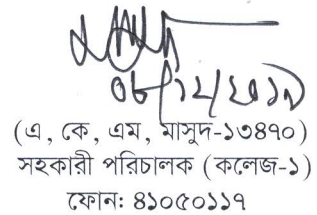 ০৮/১২/২০১৯
(এ, কে, এম, মাসুদ-১৩৪৭০)
সহকারী পরিচালক (কলেজ-১)
ফোন: ৪১০৫০১১৭